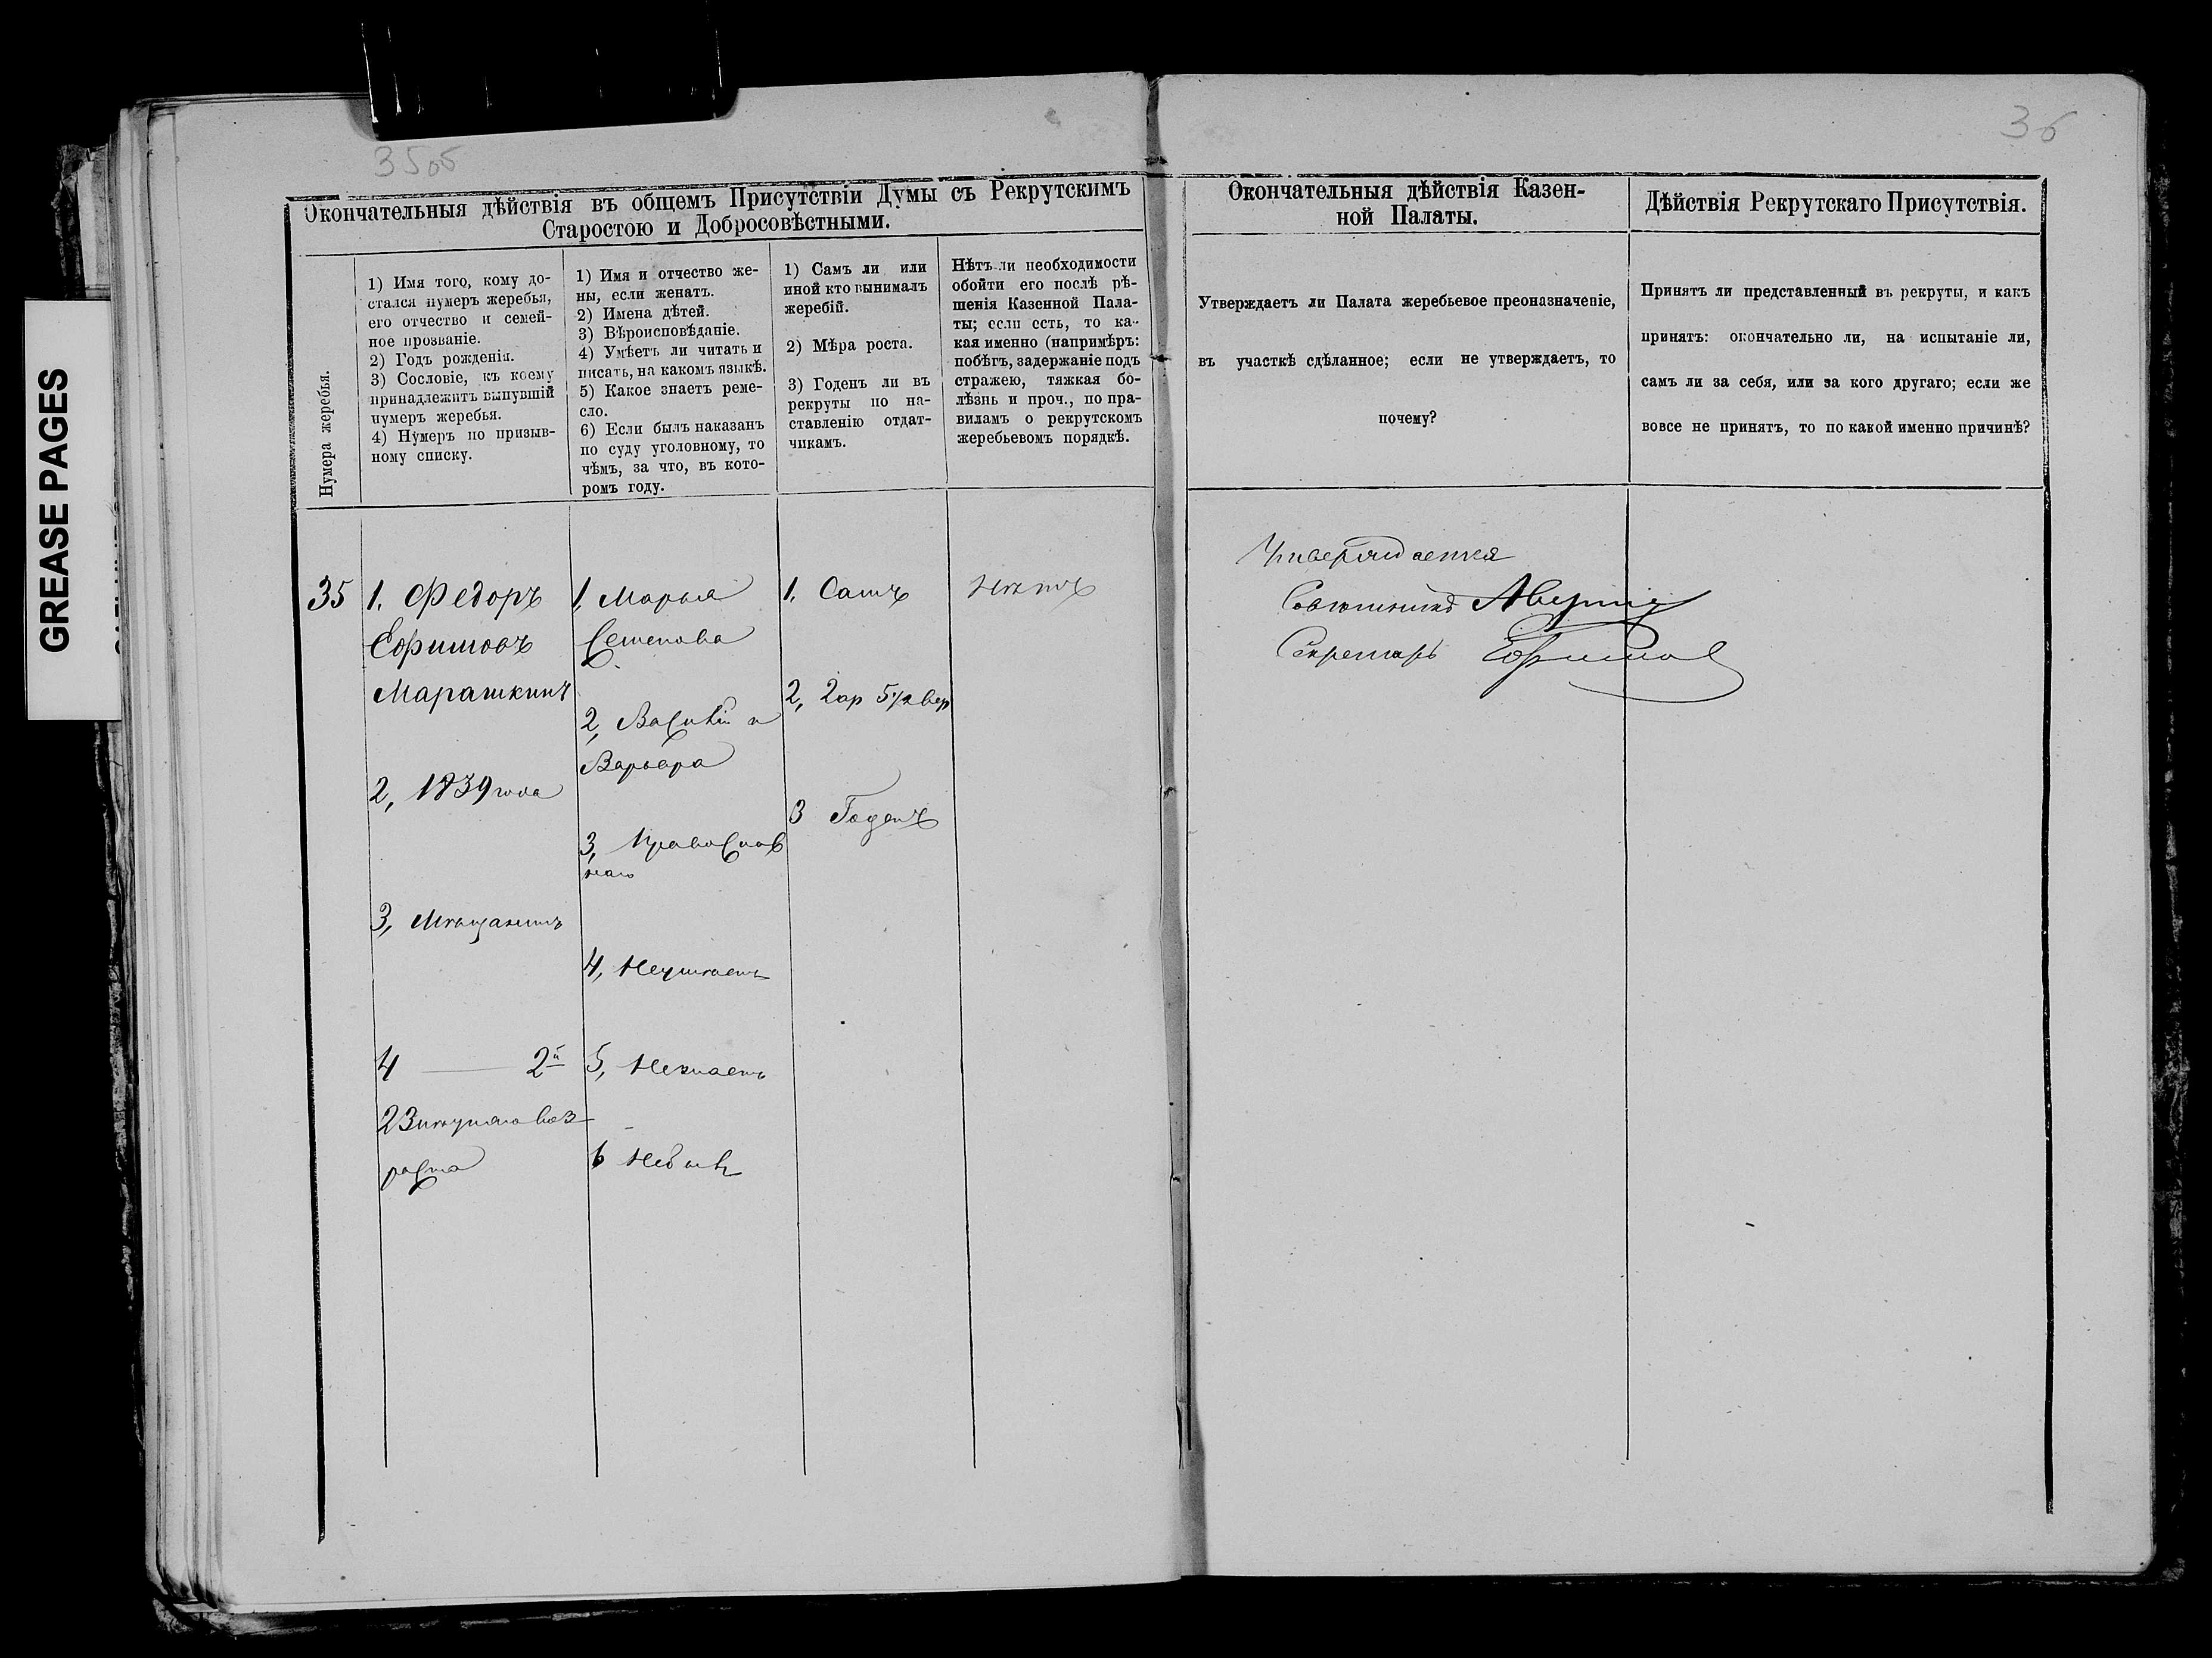 GREASE PAGES
35об
36
Окончательныя дѣйствія въ общемъ Присутствіи Думы съ Рекрутскимъ
Старостою и Добросовѣстными.
Нумера жеребья.
1) Имя того, кому до-
стался нумеръ жеребья,
его отчество и семей-
ное прозваніе.
2) Годъ рожденія.
3) Сословіе, къ коему
принадлежитъ вынувшій
нумеръ жеребья.
4) Нумеръ по призыв-
ному списку.
1) Имя и отчество же-
ны, если женатъ.
2) Имена дѣтей.
3) Вѣроисповѣданіе.
4) Умѣетъ ли читать и
писать, на какомъ языкѣ.
5) Какое знаетъ реме-
сло.
6) Если былъ наказанъ
по суду уголовному, то
чѣмъ, за что, въ кото-
ромъ году.
1) Самъ ли или
иной кто вынималъ
жеребій.
2) Мѣра роста.
3) Годенъ ли въ
рекруты по на-
ставленію отдат-
чикамъ.
Нѣтъ ли необходимости
обойти его послѣ рѣ-
шенія Казенной Пала-
ты; если есть, то ка-
кая именно (напримѣръ:
побѣгъ, задержаніе подъ
стражею, тяжкая бо-
лѣзнь и проч., по пра-
виламъ о рекрутскомъ
жеребьевомъ порядкѣ.
35
1. Федоръ
Ефимовъ
Марашкинъ
2, 1839 года
3, Мѣщанинъ
4 — 2й
23 лѣтняго воз-
раста
1, Марья
Семенова
2, Василій и
Варвара
3, Православ
наго
4, Неумѣетъ
5, Незнаетъ
6 Небылъ
1. Самъ
2, 2 ар 5 1/2 вер
3 Годенъ
Нѣтъ
Окончательныя дѣйствія Казен-
ной Палаты.
Утверждаетъ ли Палата жеребьевое преоназначеніе,
въ участкѣ сдѣланное; если не утверждаетъ, то
почему?
Утверждается
Совѣтникъ
Секретарь Ефимов
Дѣйствія Рекрутскаго Присутствія.
Принятъ ли представленный въ рекруты, и какъ
принятъ: окончательно ли, на испытаніе ли,
самъ ли за себя, или за кого другаго; если же
вовсе не принятъ, то по какой именно причинѣ?